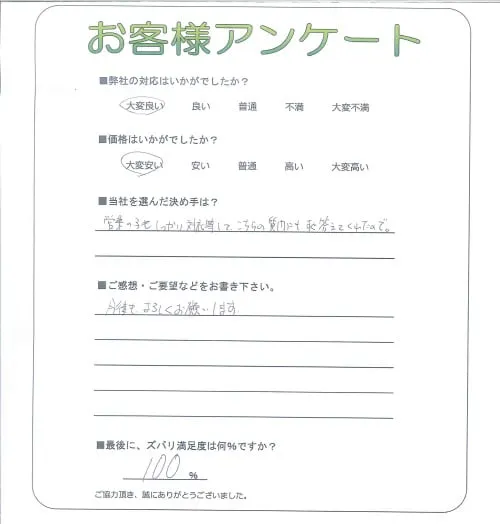 お客様アンケート
■弊社の対応はいかがでしたか?
大変良い 良い 普通 不満 大変不満
■価格はいかがでしたか?
大変安い 安い 普通 高い 大変高い
■当社を選んだ決め手は?
営業の しっかり対応 して、こちらの質問にも 答えてくれたので。
■ご感想・ご要望などをお書き下さい。
よろしくお願いします
■最後に、ズバリ満足度は何%ですか?
100 %
ご協力頂き、誠にありがとうございました。